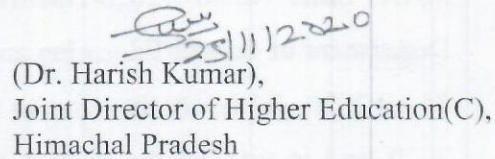 25/11/2020
(Dr. Harish Kumar),
Joint Director of Higher Education(C),
Himachal Pradesh